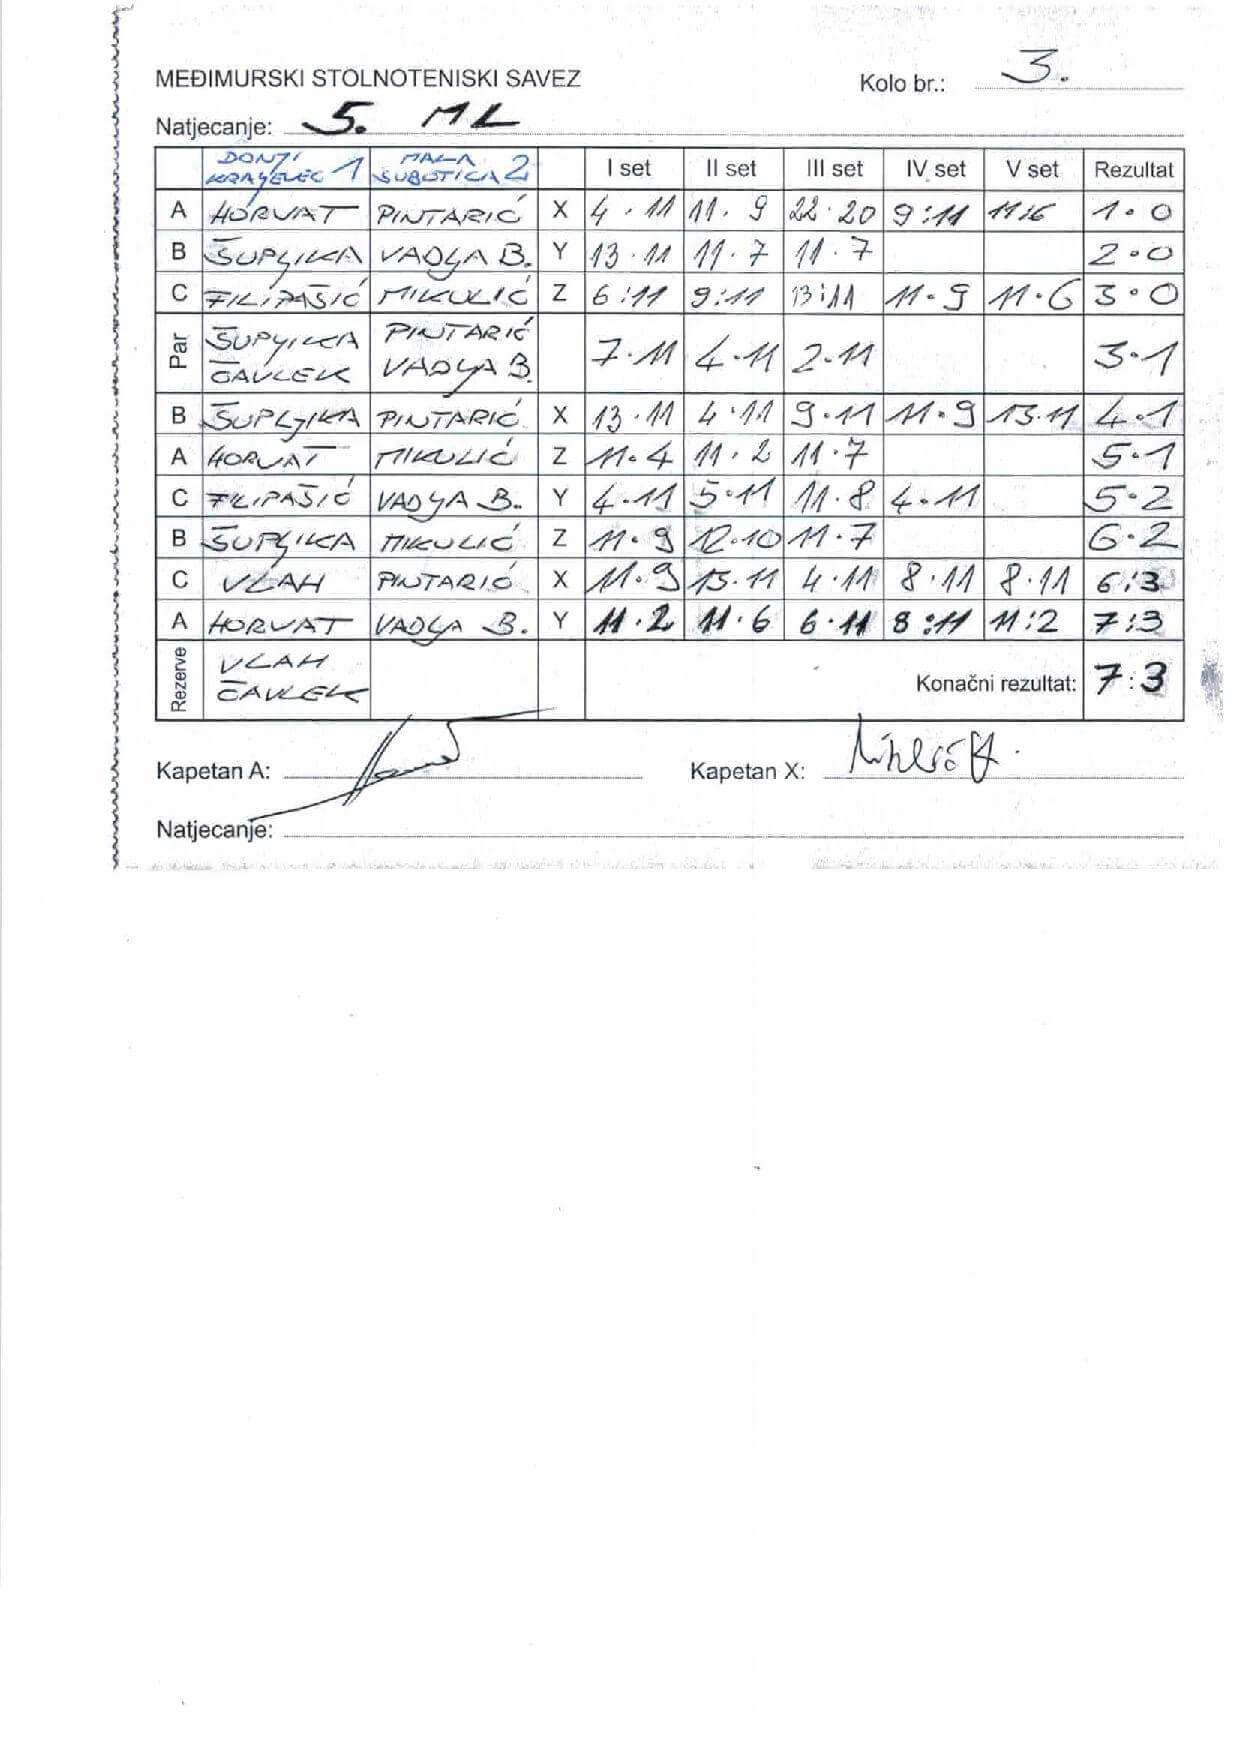 MEĐIMURSKI STOLNOTENISKI SAVEZ
Kolo br.: 3.
Natjecanje: 5. ML
DONJI KRALJEVEC 1 MALA SUBOTICA 2 I set II set III set IV set V set Rezultat
A HORVAT PINTARIĆ X 4·11 11·9 22·20 9:11 11:6 1·0
B ŠUPLJIKA VADLJA B. Y 13·11 11·7 11·7 2·0
C FILIPAŠIĆ MIKULIĆ Z 6:11 9:11 13:11 11·9 11·6 3·0
Par ŠUPLJIKA ČAVLEK PINTARIĆ VADLJA B. 7·11 4·11 2·11 3·1
B ŠUPLJIKA PINTARIĆ X 13·11 4·11 9·11 11·9 13·11 4·1
A HORVAT MIKULIĆ Z 11·4 11·2 11·7 5·1
C FILIPAŠIĆ VADLJA B. Y 4·11 5·11 11·8 4·11 5·2
B ŠUPLJIKA MIKULIĆ Z 11·9 12·10 11·7 6·2
C VLAH PINTARIĆ X 11·9 13·11 4·11 8·11 8·11 6:3
A HORVAT VADLJA B. Y 11·2 11·6 6·11 8:11 11:2 7:3
Rezerve VLAH ČAVLEK Konačni rezultat: 7:3
Kapetan A: Kapetan X:
Natjecanje: